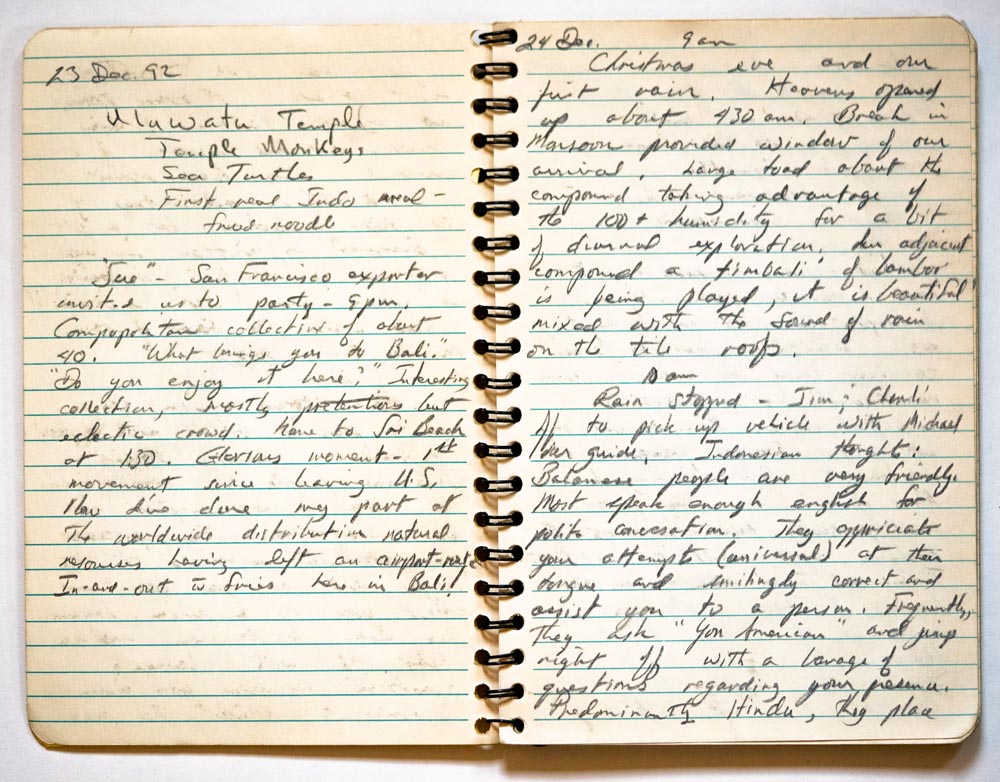 23 Dec. 92
Uluwatu Temple
Temple Monkeys
Sea Turtles
First real Indo meal -
fried noodle
"Sue" - San Francisco exporter
invited us to party - 9pm.
collection of about
40. "What brings you to Bali."
"Do you enjoy it here?" Interesting
collection, mostly pretentious but
eclectic crowd. Home to Sri Beach
at 130. Glorious moment - 1st
movement since leaving U.S.
Now I've done my part of
the worldwide distribution natural
resourses having left an airport-meal
In-and-out w fries here in Bali!
24 Dec. 9 am
Christmas eve and our
first rain. Heavens opened
up about 430 am. Break in
Monsoon provided window of our
arrival. Large toad about the
compound taking advantage of
the 100+ humidity for a bit
of diurnal exploration. In adjacent
compound a "timbali" of bamboo
is being played, it is beautiful
mixed with the sound of rain
on the tile roofs.
10 am
Rain stopped - Jim &
off to pick up vehicle with Michael
our guide. Indonesian thoughts:
Balanese people are very friendly.
Most speak enough english for
polite convesation. They appriciate
your attempts (universal) at their
tongue and smilingly correct and
assist you to a person. Frequently,
they ask "You American" and jump
right off with a barage of
questions regarding your presence.
Predominantly Hindu, they place